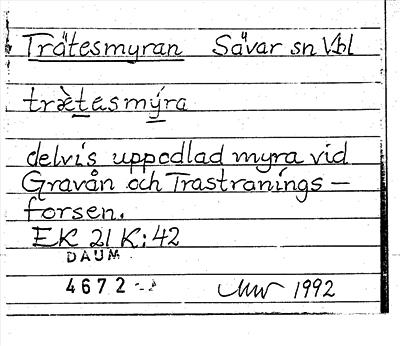 Trätesmyran Sävar sn Vbl
træ̀tesmy̌ra
delvis uppodlad myra vid
Gravån och Trastranings-
forsen.
EK 21 K:42
DAUM
4672
1992